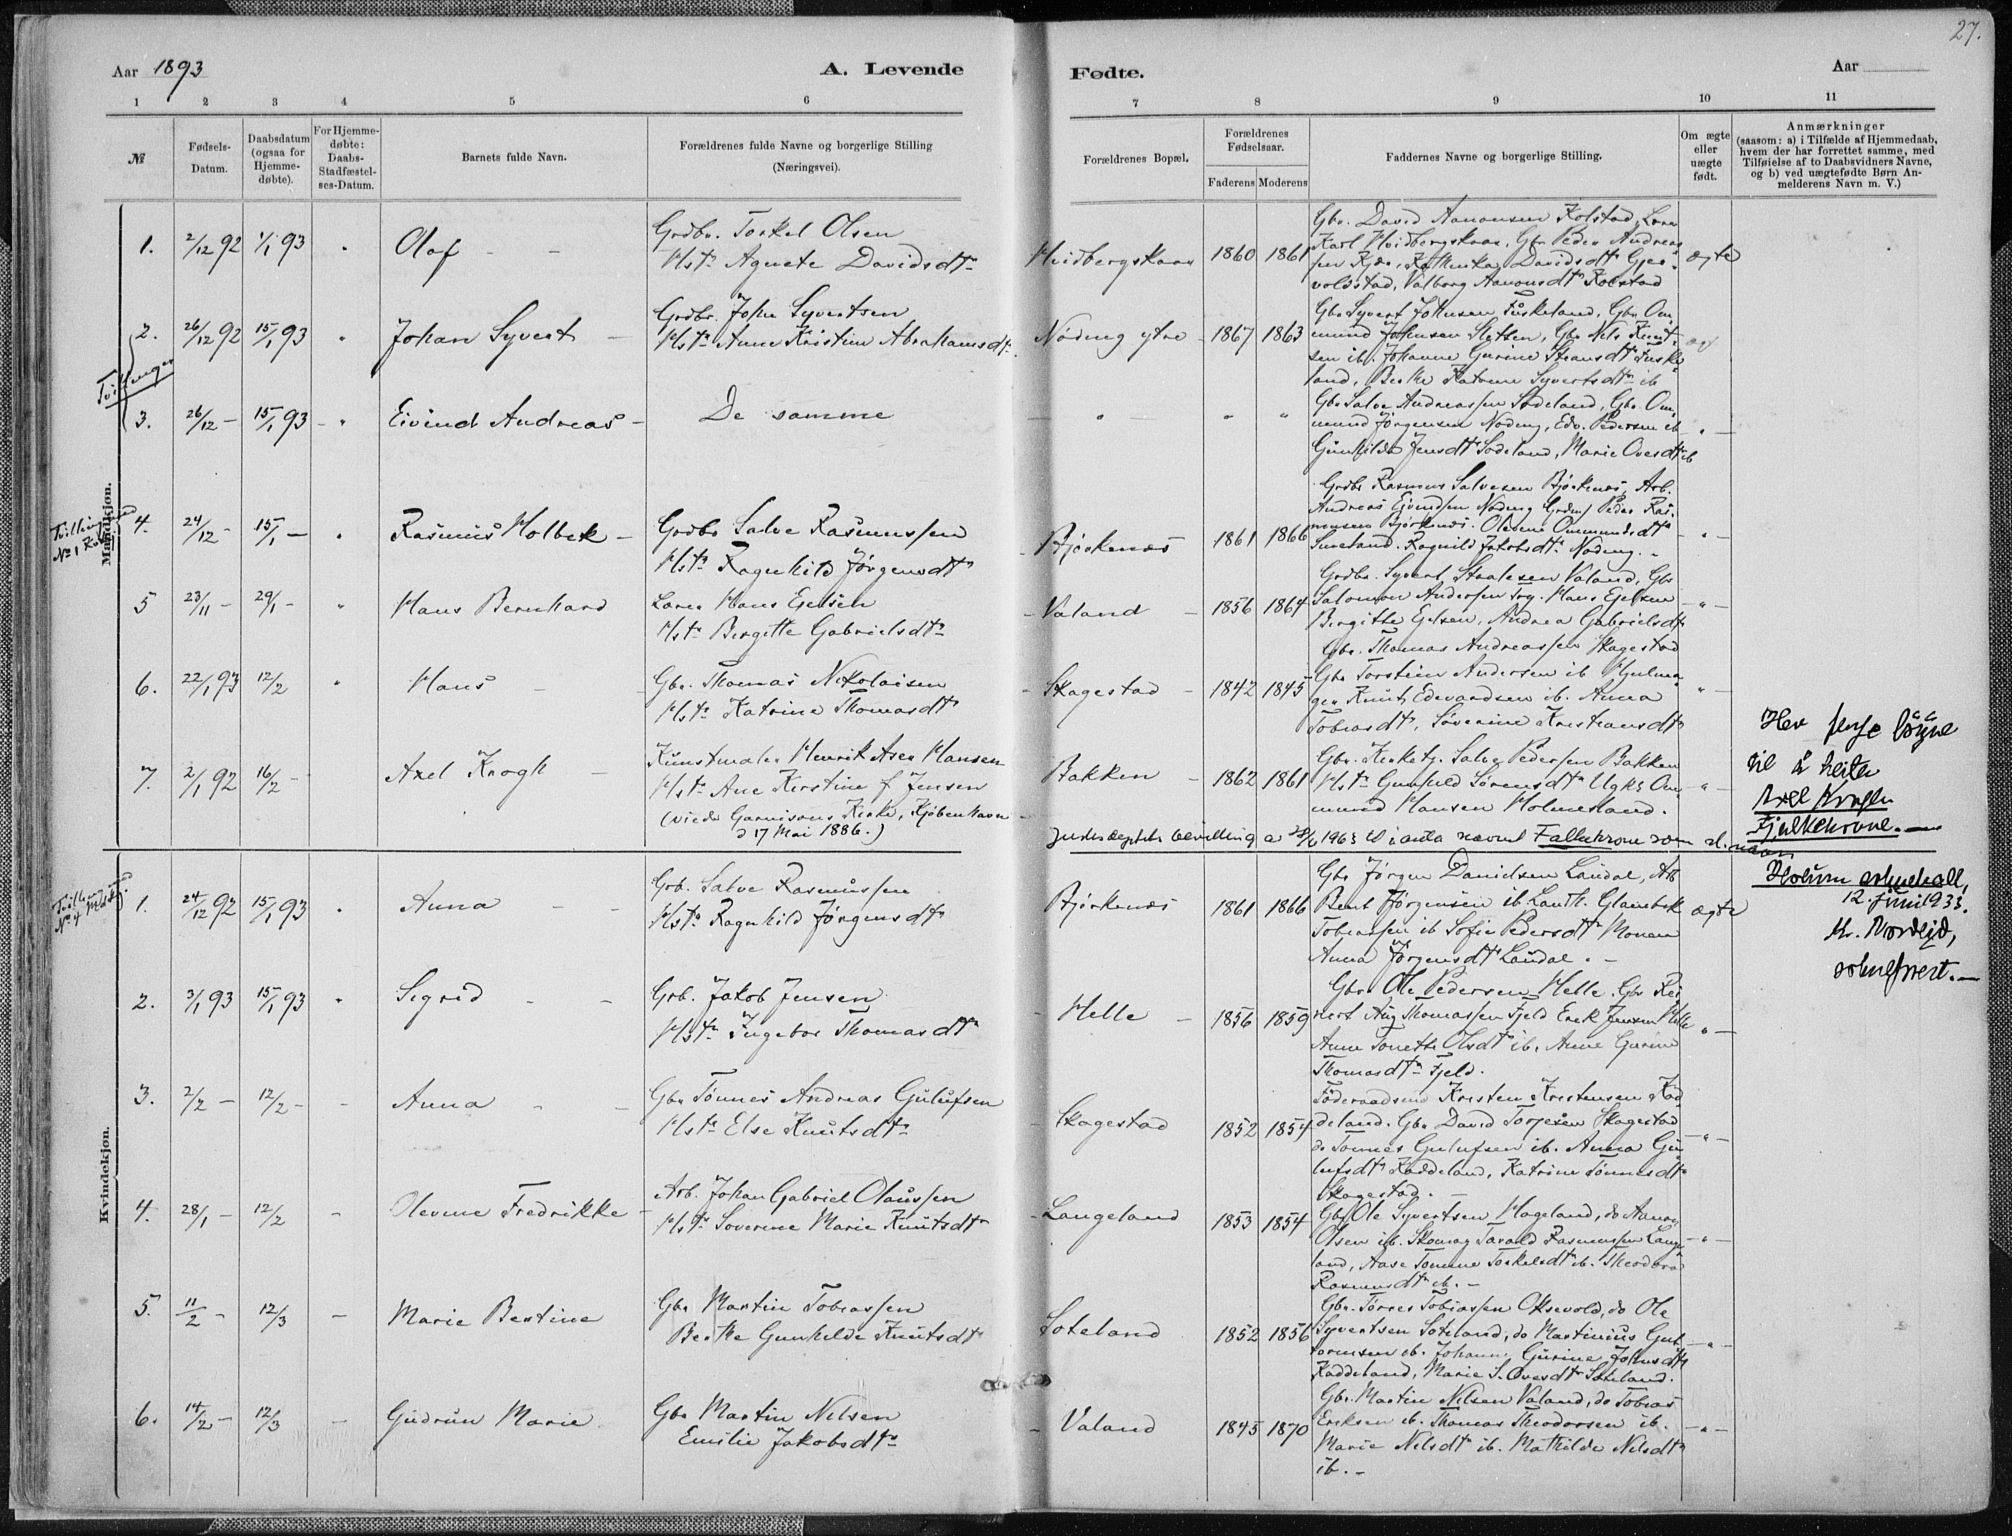 27.
Aar 1893
A. Levende
Fødte.
Aar
1 2 3 4 5 6
7 8 9 10 11
№
Fødsels-
Datum.
Daabsdatum
(ogsaa for
Hjemme-
døbte).
For Hjemme-
døbte:
Daabs-
Stadfæstel-
ses-Datum.
Barnets fulde Navn.
Forældrenes fulde Navne og borgerlige Stilling
(Næringsvei).
Forældrenes Bopæl.
Forældrenes
Fødselsaar.
Faderens Moderens
Faddernes Navne og borgerlige Stilling.
Om ægte
eller
uægte
født.
Anmærkninger
(saasom: a) i Tilfælde af Hjemmedaab,
hvem der har forrettet samme, med
Tilføielse af to Daabsvidners Navne,
og b) ved uægtefødte Børn An-
melderens Navn m. V.)
Mandkjøn.
1. 2/12 92 1/1 93 Olaf
Grdbr. Torkel Olsen
Hstr Agnete Davidsdtr
Hvidbergskaar 1860 1861 ægte
Gbr. David Aanonsen Kolstad,
Karl Hvidbergskaar, Gbr Peder Andreas
sen Davidsdtr Gjer-
volsstad, Valborg Aanonsdtr Kolstad
Tvillinger
2. 26/12 92 15/1 93 Johan Syvert
Grdbr. John Syvertsen
Hstr Anne Kristine Abrahamsdtr
Nøding ytre 1867 1863
Gbr Syvert Johnsen Fuskeland, Gbr Om-
mund Johnsen Sletten, Gbr Nels Knut-
sen ib. Johanne Gurine Fuske
land, Katrine Syvertsdtr ib
3. 26/12 - 15/1 93 Eivind Andreas
De samme
Gbr Salve Andreassen Sodeland, Gbr Om-
mund Jørgensen Nøding, Edv. Pedersen ib
Gunhilda Jensdtr Sodeland, Marie Ovesdtr ib
Tvilling med
No 1 Kvkj.
4. 24/12 - 15/1 - Rasmus Holbek
Grdbr Salve Rasmussen
Hstr Ragnhild Jørgensdtr
Bjørkenæs 1861 1866
Grdbr Rasmus Salvesen Bjørkenæs, Arb.
Andreas Eivindsen Nøding Peder Ras-
mussen Bjørkenæs. Olene Ommundsdtr
Smeland. Ragnild Jakobsdtr Nøding.
5 23/11 - 29/1 - Hans Bernhard
Lærer Hans Egelsen
Hstr Bergitte Gabrielsdtr
Valand 1856 1864
Grdbr. Syvert Staalesen Valand, Gbr
Salomon Andersen Hans Egelsen
Bergitte Egelsen, Andrea Gabrielsdtr
6. 22/1 93 12/2 Hans
Gbr. Thomas Nikolaisen
Hstr Katrine Thomasdtr
Skagestad 1842 1845
Gbr. Thomas Andreassen Skagestad
Gbr Torstein Andersen ib Hjulma-
ger Knut Edvardsen ib. Anna
Tobiasdtr, Søverine Kristiansdtr
7. 2/1 92 16/2 - Axel Krogh
Kunstmaler Henrik Hansen
Hstr Ane Kirstine f Jensen
(viede Garnisons Kirke, Kjøbenhavn
d 17 Mai 1886.)
Bakken 1862 1861
Gbr. Salve Pedersen Bakken
Hstr Gunhild Sørensdtr Ugk Om
mund Hansen Holmesland.
bevilling a 28/6 1963 til å anta navnet Falkekrone som sl.navn
Hev løyve
til å heita
Axel Krogh
Fjelkekrone.
Holum soknekall,
12. juni 1933.
sokneprest.
Kvindekjøn.
Tvilling med
No 4 Mdkj.
1. 24/12 92 15/1 93 Anna
Grb. Salve Rasmussen
Hstr Ragnhild Jørgensdtr
Bjørkenæs 1861 1866 ægte
Gbr Jørgen Danielsen Laudal, Arb
Bert Jørgensen ib Glambek
Tobiassen ib Sofie Pedersdtr Monen
Anna Jørgensdtr Laudal.
2. 3/1 93 15/1 93 Sigrid
Grb. Jakob Jensen
Hstr Ingebor Thomasdtr
Helle 1856 1859
Gbr Ole Pedersen Helle. Gbr Rei
nert Aug Thomassen Fjeld Erik Jensen Helle
Anne Tonette Olsdtr ib. Anne Gurine
Thomasdtr Fjeld.
3. 2/2 - 12/2 - Anna
Gbr Tønnes Andreas Gulufsen
Hstr Else Knutsdtr
Skagestad 1852 1854
Føderaadsmd Kristen Kristensen Kad
deland. Gbr David Torjesen Skagestad
do Tønnes Gulufsen ib. Anna Gu-
lufsdtr Kaddeland, Katrine Tønnesdtr
Skagestad.
4. 28/1 - 12/2 - Olevine Fredrikke
Arb. Johan Gabriel Olaussen
Hstr Soverine Marie Knutsdtr
Langeland 1853 1854
Gbr Ole Syvertsen Hageland, do Aanon
Olsen ib. Skomag Tarald Rasmussen Lange
land, Aase Tomine Torkelsdtr ib. Theodora
Rasmusdtr ib.
5. 11/2 - 12/3 - Marie Bertine
Gbr Martin Tobiassen
Berthe Gunhilde Knutsdtr
Soteland 1852 1856
Gbr. Tørres Tobiassen Oksevold, do Ole
Syvertsen Soteland, do Martinius Gut
tormsen ib. Johanne Gurine Johnsdtr
Kaddeland, Marie S. Ovesdtr Soteland.
6. 14/2 - 12/3 - Gudrun Marie
Gbr Martin Nilsen
Emilie Jakobsdtr
Valand 1845 1870
Gbr. Martin Nilsen Valand, do Tobias
Eriksen ib. Thomas Theodorsen ib.
Marie Nilsdtr ib. Mathilde Nilsdtr
ib.